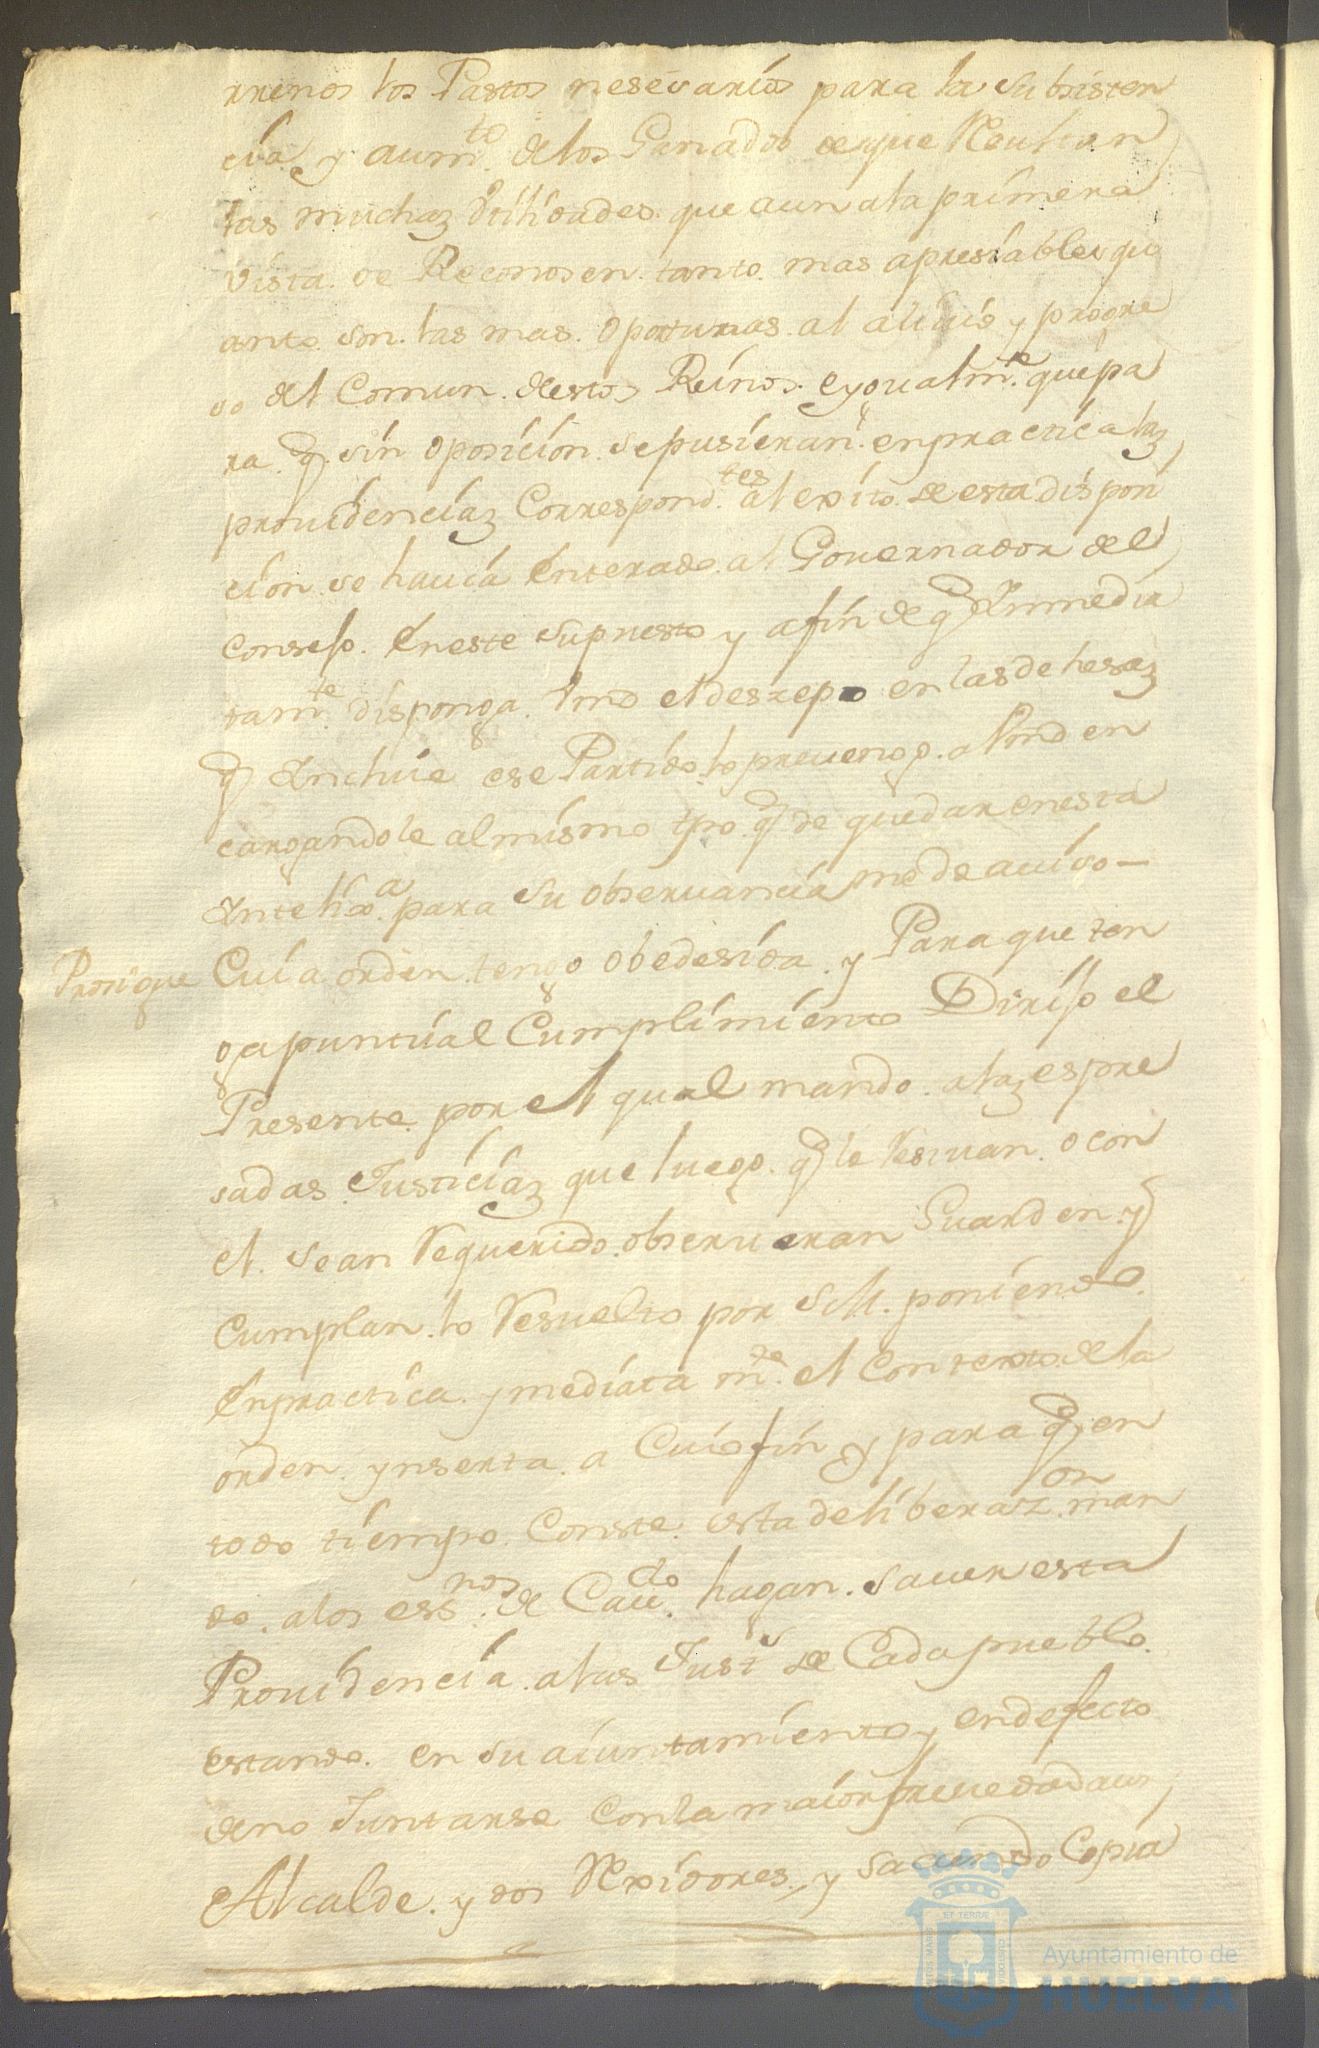 rrenos los Pastos nesesarios para la Subsisten
cia y aum.to de los Ganados de que Resultan
las muchas Utilidades que aun ala primera
vista se Reconosen tanto mas apresiables qu
anto son las mas oportunas al alivio y progre
so del Comun destos Reinos eygualm.te que pa
ra q. sin oposicion sepusieran enpractica las
providencias Correspond.tes al exito de esta dispoci
cion se havia Enterado al Governador del
Consejo. Eneste Supuesto y afin de q Ynmedia
tam.te disponga Vmd el desrepo en las dehesas
q Yncluie ese Partido lo prevengo a Vmd en
cargandole almismo tpo q de quedar enesta
Yntelig.a para su observancia me de aviso —
Prosigue
Cuia orden tengo obedesida y Para que ten
ga puntual Cumplimiento Dirijo el
Presente por el qual mando alas espre
sadas Justicias que luego q le Resivan o con
el sean Requerido observaran Guarden y
Cumplan lo Resuelto por S.M. poniendo
Enpractica ymediatam.te el Contexto de la
orden ynserta a Cuio fin y para q en
todo tiempo Conste esta deliberaz.on man
do alos ess.nos de Cav.do hagan saver esta
Providencia alas Just.s de Cada pueblo
estando en su aiuntamiento y endefecto
deno Juntarse Conla maior brevedad aun
Alcalde y dos Rexidores, y sacando Copia
ET TERRAE
Ayuntamiento de
HUELVA